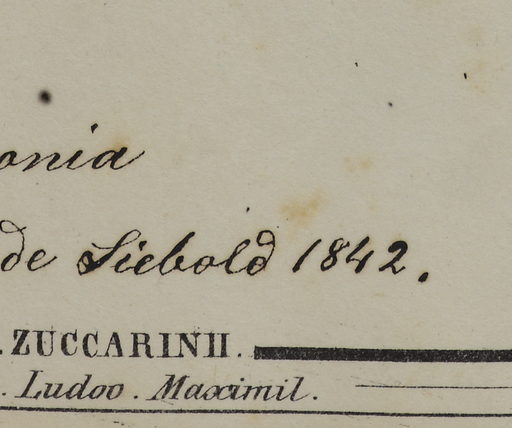 onia
de Siebold 1842.
. ZUCCARINII.
. Ludov. Maximil.